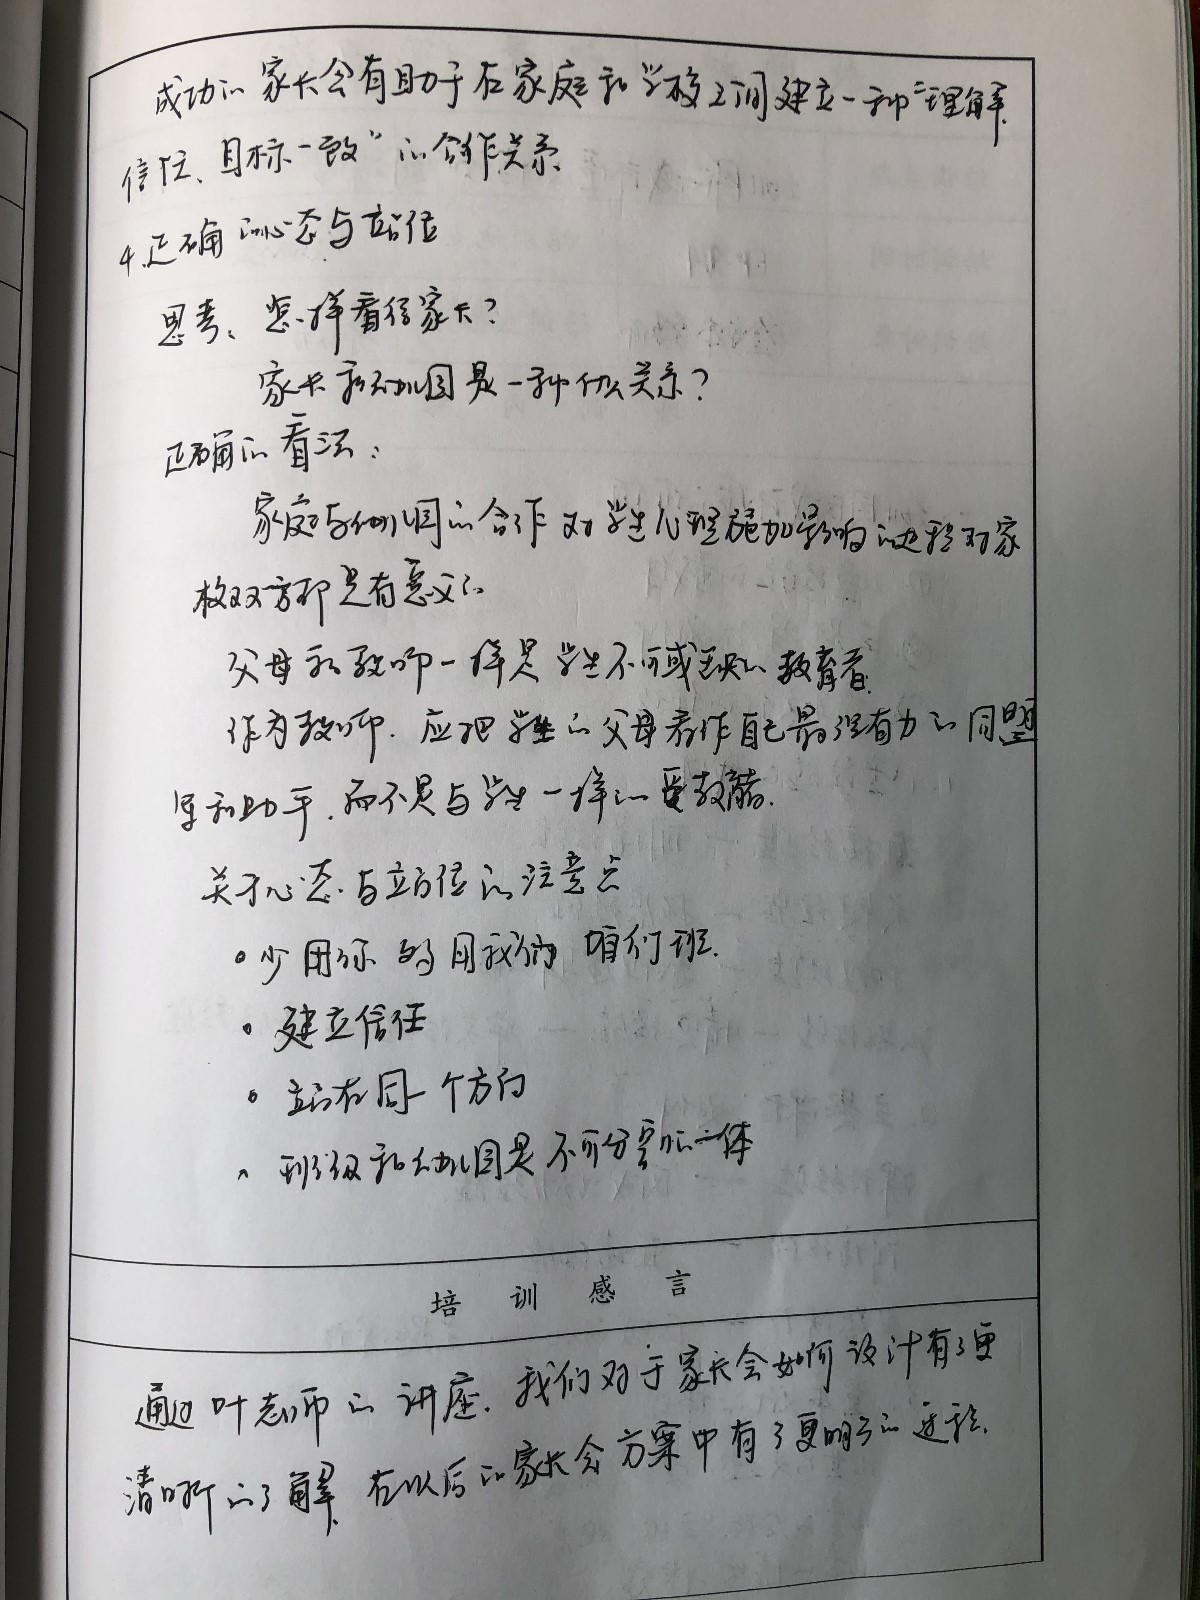 成功的家长会有助于在家庭和学校之间建立一种“理解、
信任、目标一致”的合作关系
4.正确的心态与站位
思考：怎样看待家长？
家长和幼儿园是一种什么关系？
正确的看法：
家庭与幼儿园的合作对学生心理施加影响的过程对家
校双方都是有意义的
父母和教师一样是学生不可或缺的教育者.
作为教师.应把学生的父母看作自己最强有力的同盟
军和助手.而不是与学生一样的受教育者.
关于心态与站位的注意点
•少用你 多用我们 咱们班.
•建立信任
•站在同一个方向
•班级和幼儿园是不可分割的一体
培训感言
通过叶老师的讲座.我们对于家长会如何设计有了更
清晰的了解.在以后的家长会方案中有了更明了的过程.